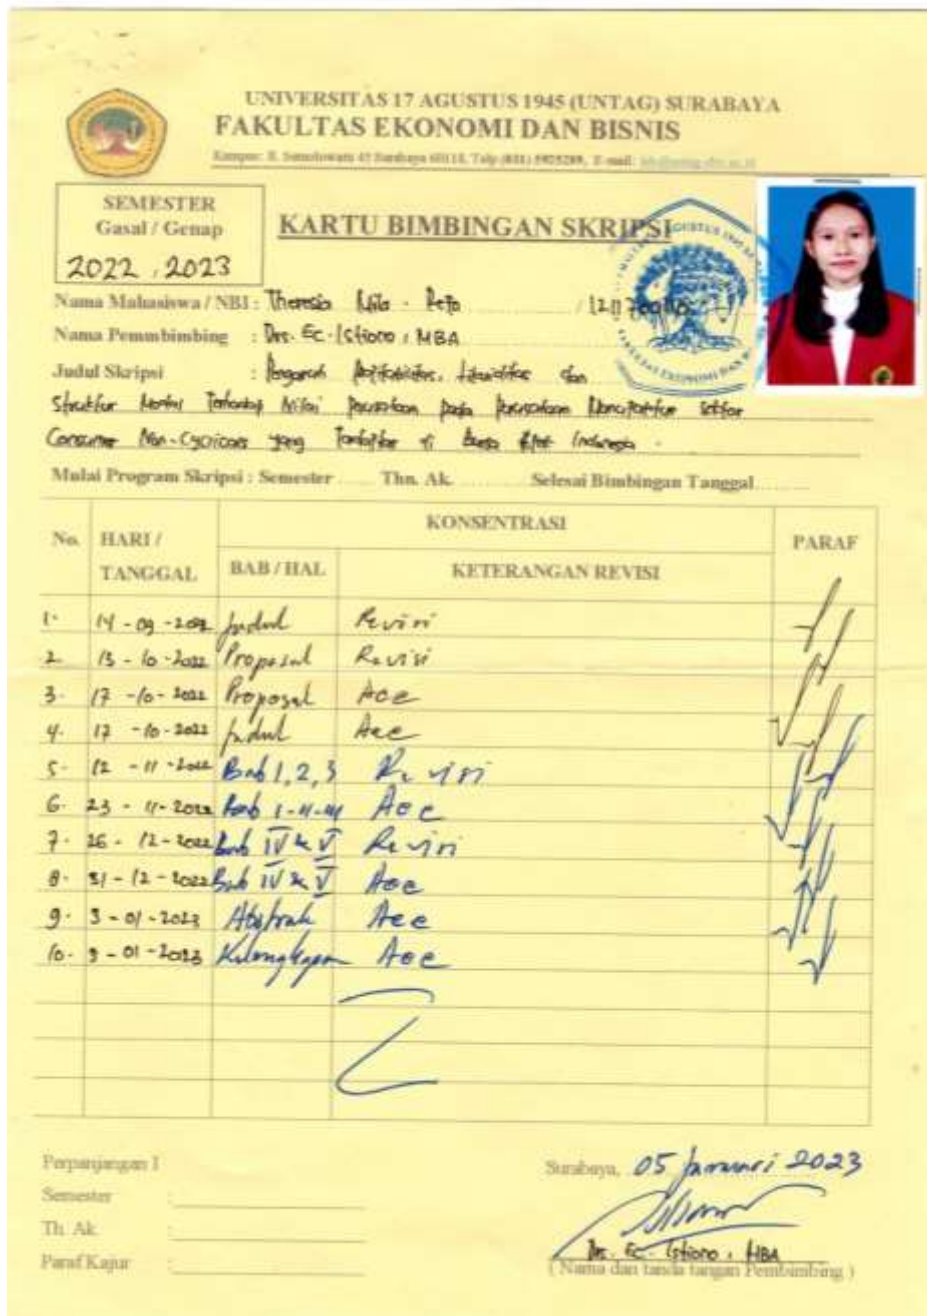 UNIVERSITAS 17 AGUSTUS 1945 (UNTAG) SURABAYA
FAKULTAS EKONOMI DAN BISNIS
Kampus: Jl. Semolowaru 45 Surabaya 60118, Telp (031) 5925289, E-mail:
SEMESTER
Gasal / Genap
2022, 2023
KARTU BIMBINGAN SKRIPSI
Nama Mahasiswa / NBI : Theresia Mila - Peto /
Nama Pemmbimbing : Drs. Ec. Istiono, MBA
Judul Skripsi : Pengaruh Profitabilitas, Likuiditas dan
Struktur Modal Terhadap Nilai Perusahaan pada Perusahaan Manufaktur Sektor
Consumer Non-Cyclicals yang Terdaftar di Bursa Efek Indonesia.
Mulai Program Skripsi : Semester ........ Thn. Ak. ........ Selesai Bimbingan Tanggal ........
No. HARI / TANGGAL KONSENTRASI PARAF
BAB / HAL KETERANGAN REVISI
1. 14 - 09 - 2022 Judul Revisi
2. 13 - 10 - 2022 Proposal Revisi
3. 17 - 10 - 2022 Proposal Acc
4. 17 - 10 - 2022 Judul Acc
5. 12 - 11 - 2022 Bab 1, 2, 3 Revisi
6. 23 - 11 - 2022 Bab I-II-III Acc
7. 26 - 12 - 2022 Bab IV & V Revisi
8. 31 - 12 - 2022 Bab IV & V Acc
9. 3 - 01 - 2023 Abstrak Acc
10. 3 - 01 - 2023 Kelengkapan Acc
Perpanjangan I
Semester :
Th. Ak. :
Paraf Kajur :
Surabaya, 05 Januari 2023
Drs. Ec. Istiono, MBA
( Nama dan tanda tangan Pembimbing )